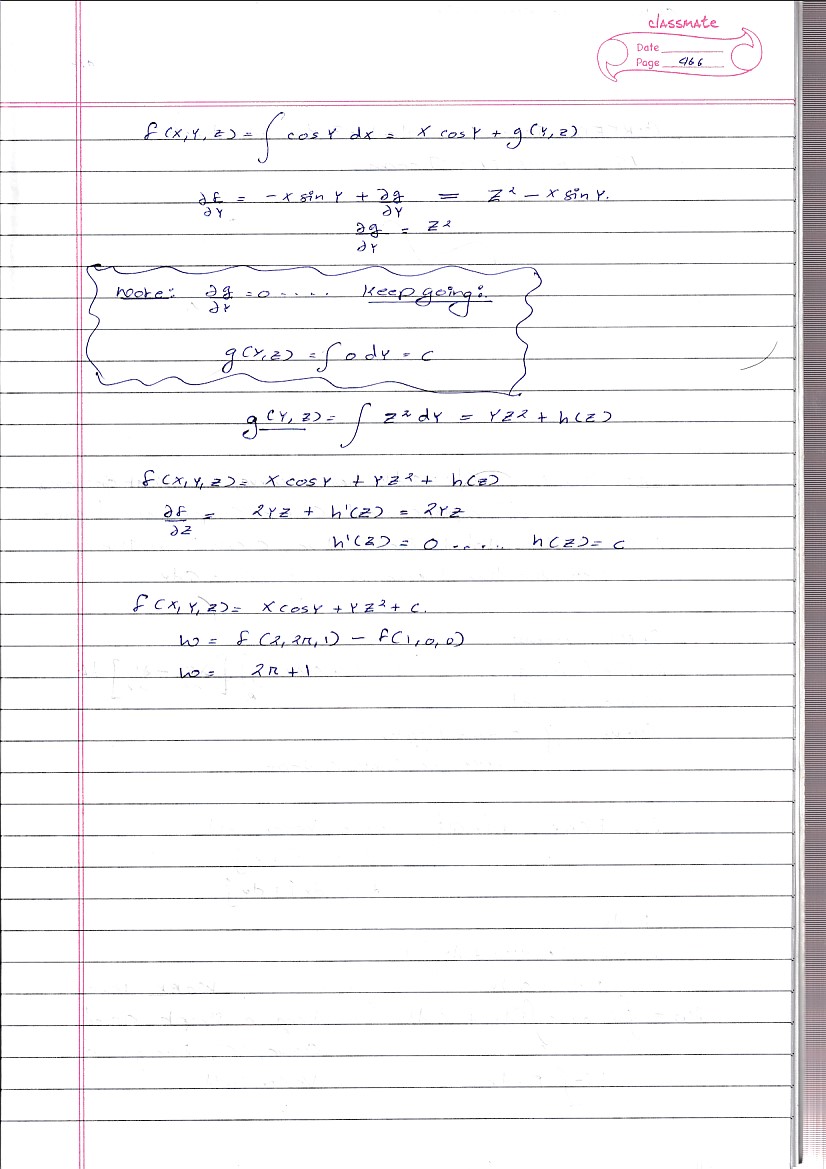 classmate
Date
Page 466
f(x,y,z) = ∫ cosy dx = x cosy + g(y,z)
∂f/∂y = -x sin y + ∂g/∂y = z² - x sin y.
∂g/∂y = z²
Note: ∂g/∂y = 0 ..... Keep going:.
g(y,z) = ∫ 0 dy = c
g(y,z) = ∫ z² dy = yz² + h(z)
f(x,y,z) = x cosy + yz² + h(z)
∂f/∂z = 2yz + h'(z) = 2yz
h'(z) = 0 ..... h(z) = c
f(x,y,z) = x cosy + yz² + c.
w = f(2,2π,1) - f(1,0,0)
w = 2π + 1